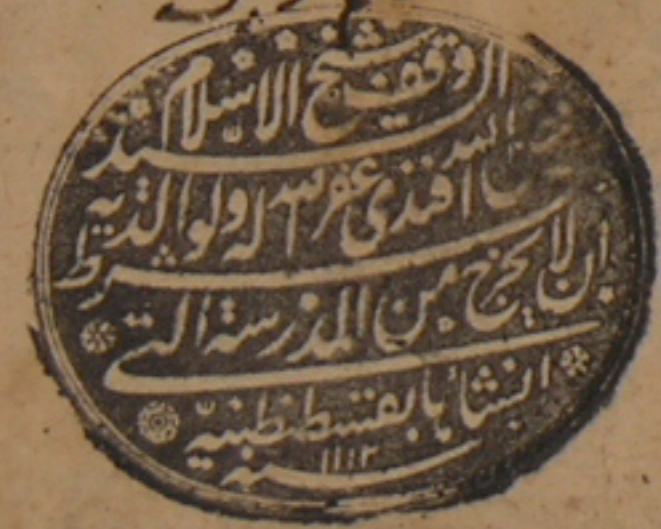 وقف شيخ الاسلام السيد
الله افندى غفر الله له ولوالديه
بشرط ان لا يخرج من المدرسة التى
انشأها بقسطنطنية
سنه ١١١٢